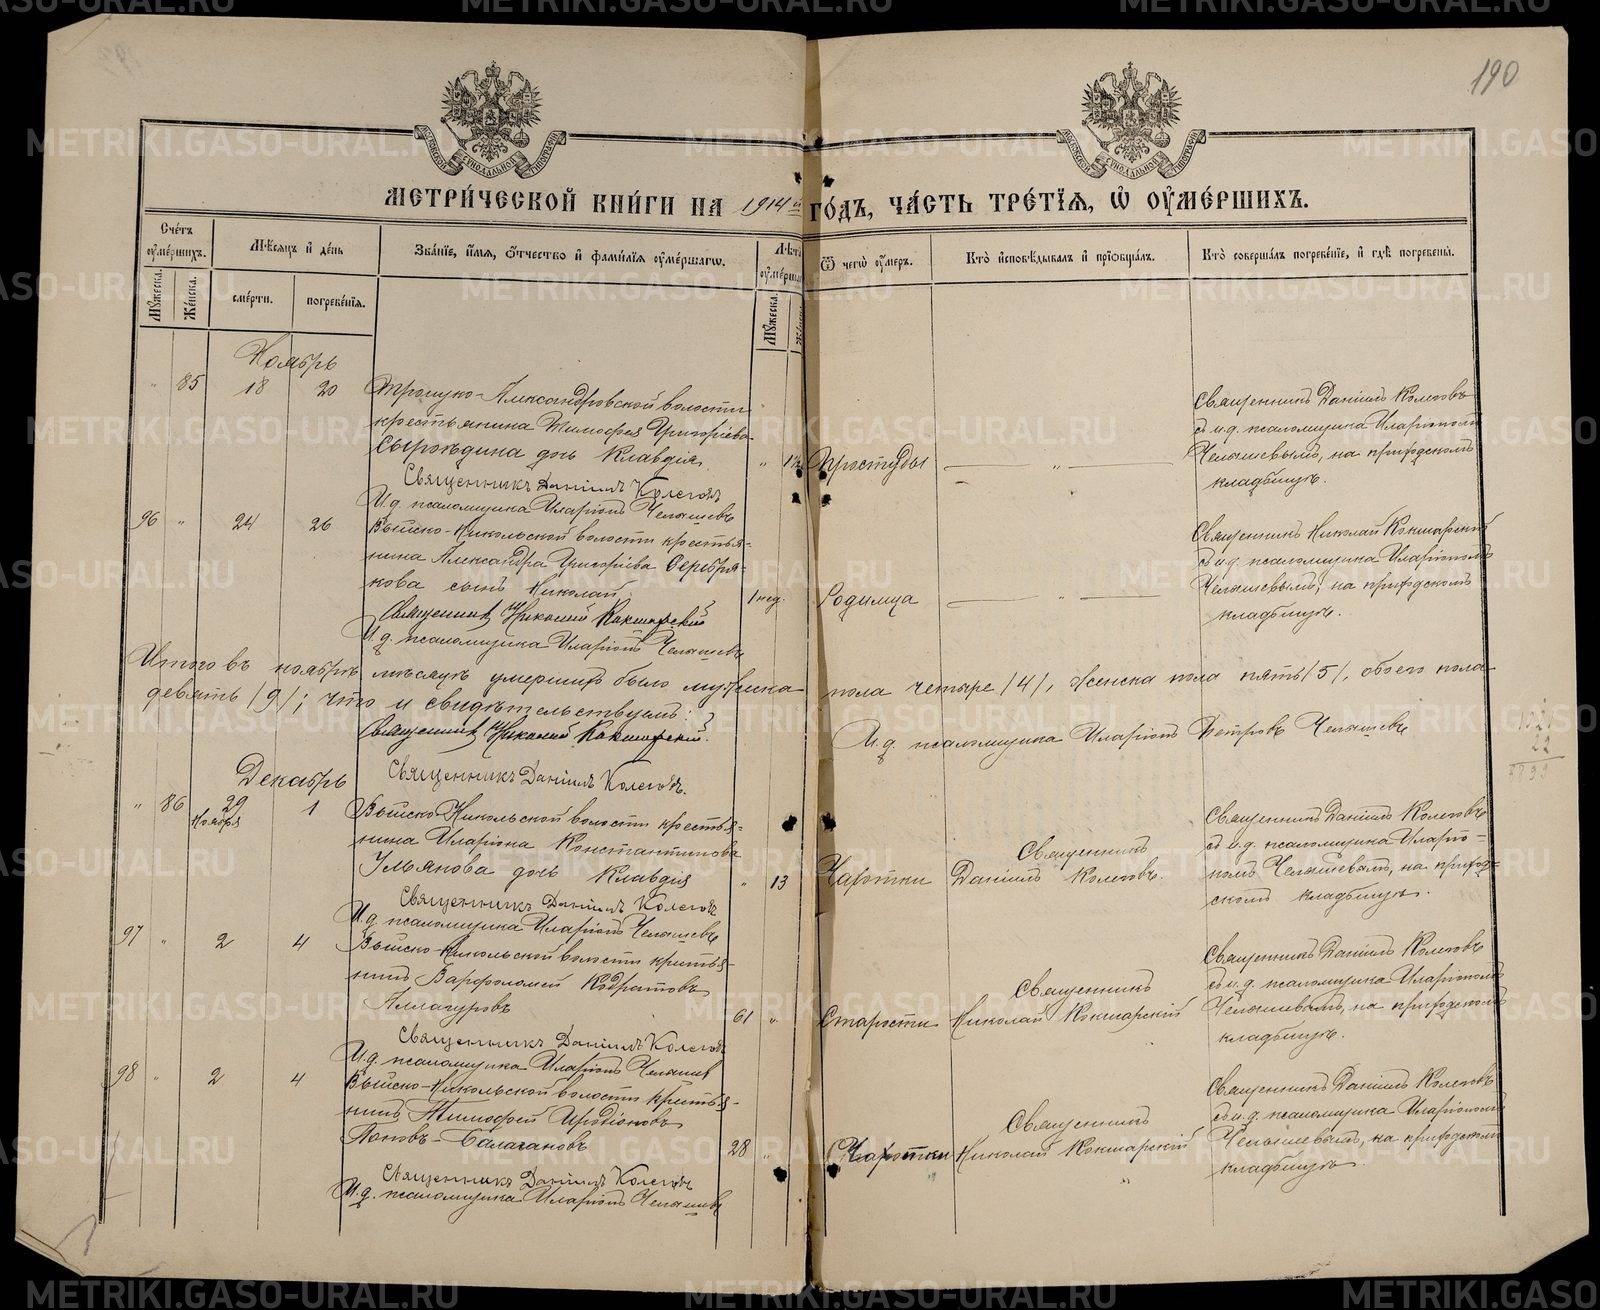 190
МЕТРИ́ЧЕСКОЙ КНИ́ГИ НА 1914 й ГО́ДЪ, ЧА́СТЬ ТРЕ́ТІѦ, Ѽ ОУМЕ́РШИХЪ.
Сче́тъ оумéршихъ.
Мꙋжеска.
Же́нска.
Мѣсѧцъ и де́нь
сме́рти.
погребе́нїѧ.
Зва́нїе, и́мѧ, ѻ҆́тчество и фами́лїѧ оуме́ршагѡ.
Лѣта оуме́ршаго
Мꙋжеска.
Ѿ чегѡ̀ оу́меръ.
Кто̀ исповѣ́дывалъ и прїѡбща́лъ.
Кто̀ соверша́лъ погребе́нїе, и гдѣ̀ погребены̀.
Ноябрь
" 85 18 20 Троицко-Александровской волости
крестьянина Тимофея Григоріева
Сыроѣдина дочь Клавдія. "
Простуды — " —
Священникъ Даніилъ Колеговъ
съ и.д. псаломщика Иларіономъ
Челышевымъ, на приходскомъ
кладбищѣ.
Священникъ Даніилъ Колеговъ
И.д. псаломщика Иларіонъ Челышевъ
96 " 24 26 Выйско-Никольской волости крестья-
нина Александра Григоріева Серебря-
кова сынъ Николай. 1 нед.
Родимца — " —
Священникъ Николай Кокшарскій
съ и.д. псаломщика Иларіономъ
Челышевымъ, на приходскомъ
кладбищѣ.
Священникъ Николай Кокшарскій
И.д. псаломщика Иларіонъ Челышевъ
Итого въ ноябрѣ мѣсяцѣ умершихъ было мужеска пола четыре /4/, женска пола пять /5/, обоего пола
девять /9/; что и свидѣтельствуемъ:
Священникъ Николай Кокшарскій.
И.д. псаломщика Иларіонъ Петровъ Челышевъ
Священникъ Даніилъ Колеговъ.
Декабрь
" 86 29 Ноября 1 Выйско-Никольской волости крестья-
нина Иларіона Константинова
Ульянова дочь Клавдія " 13
Чахотки
Священникъ
Даніилъ Колеговъ.
Священникъ Даніилъ Колеговъ
съ и.д. псаломщика Иларіо-
номъ Челышевымъ, на приход-
скомъ кладбищѣ.
Священникъ Даніилъ Колеговъ
И.д. псаломщика Иларіонъ Челышевъ
97 " 2 4 Выйско-Никольской волости крестья-
нинъ Варфоломей Кодратовъ
61 "
Старости
Священникъ
Николай Кокшарскій
Священникъ Даніилъ Колеговъ
съ и.д. псаломщика Иларіономъ
Челышевымъ, на приходскомъ
кладбищѣ.
Священникъ Даніилъ Колеговъ
И.д. псаломщика Иларіонъ Челышев
98 " 2 4 Выйско-Никольской волости крестья-
нинъ Тимофей Иродіоновъ
Поповъ-Балагановъ 28 "
Чахотки
Священникъ
Николай Кокшарскій
Священникъ Даніилъ Колеговъ
съ и.д. псаломщика Иларіономъ
Челышевымъ, на приходскомъ
кладбищѣ.
Священникъ Даніилъ Колеговъ
И.д. псаломщика Иларіонъ Челышевъ
METRIKI.GASO-URAL.RU